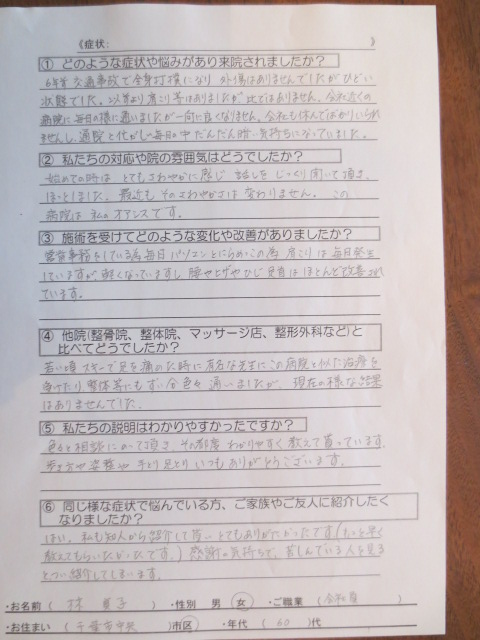 《症状: 》
① どのような症状や悩みがあり来院されましたか？
6年前 交通事故で全身打撲になり 外傷はありませんでしたがひどい
状態でした。以前より肩こり等はありましたが比ではありません。会社近くの
病院に毎日の様に通いましたが一向に良くなりません。会社も休んでばかりいられ
ませんし、通院と仕事の毎日の中 だんだん暗い気持ちになっていました。
② 私たちの対応や院の雰囲気はどうでしたか？
始めての時は とてもさわやかに感じ 話しを じっくり聞いて頂き、
ほっとしました。最近も そのさわやかさは 変わりません。この
病院は 私のオアシスです。
③ 施術を受けてどのような変化や改善がありましたか？
営業事務をしている為 毎日 パソコンとにらめっこの為 肩こり は毎日発生
していますが 軽くなっていますし 腰やヒザやひじ 足首は ほとんど改善され
ています。
④ 他院(整骨院、整体院、マッサージ店、整形外科など)と
比べてどうでしたか？
若い頃 スキーで足を痛めた時に 有名な先生にこの病院と似た治療を
受けたり 整体等にも ずい分色々 通いましたが、現在の様な結果
はありませんでした。
⑤ 私たちの説明はわかりやすかったですか？
色々と相談にのって頂き、その都度 わかりやすく教えて貰っています。
歩き方や姿勢や 手とり足とり いつもありがとうございます。
⑥ 同じ様な症状で悩んでいる方、ご家族やご友人に紹介したく
なりましたか？
はい、私も知人から紹介して貰い とてもありがたかったです(もっと早く
教えてもらいたかったです。) 感謝の気持ちで、苦しんでいる人を見る
とつい紹介してしまいます。
・お名前( 林 子 ) ・性別 男 女 ・ご職業( 会社員 )
・お住まい( 千葉市中央 )市区 ・年代( 60 )代